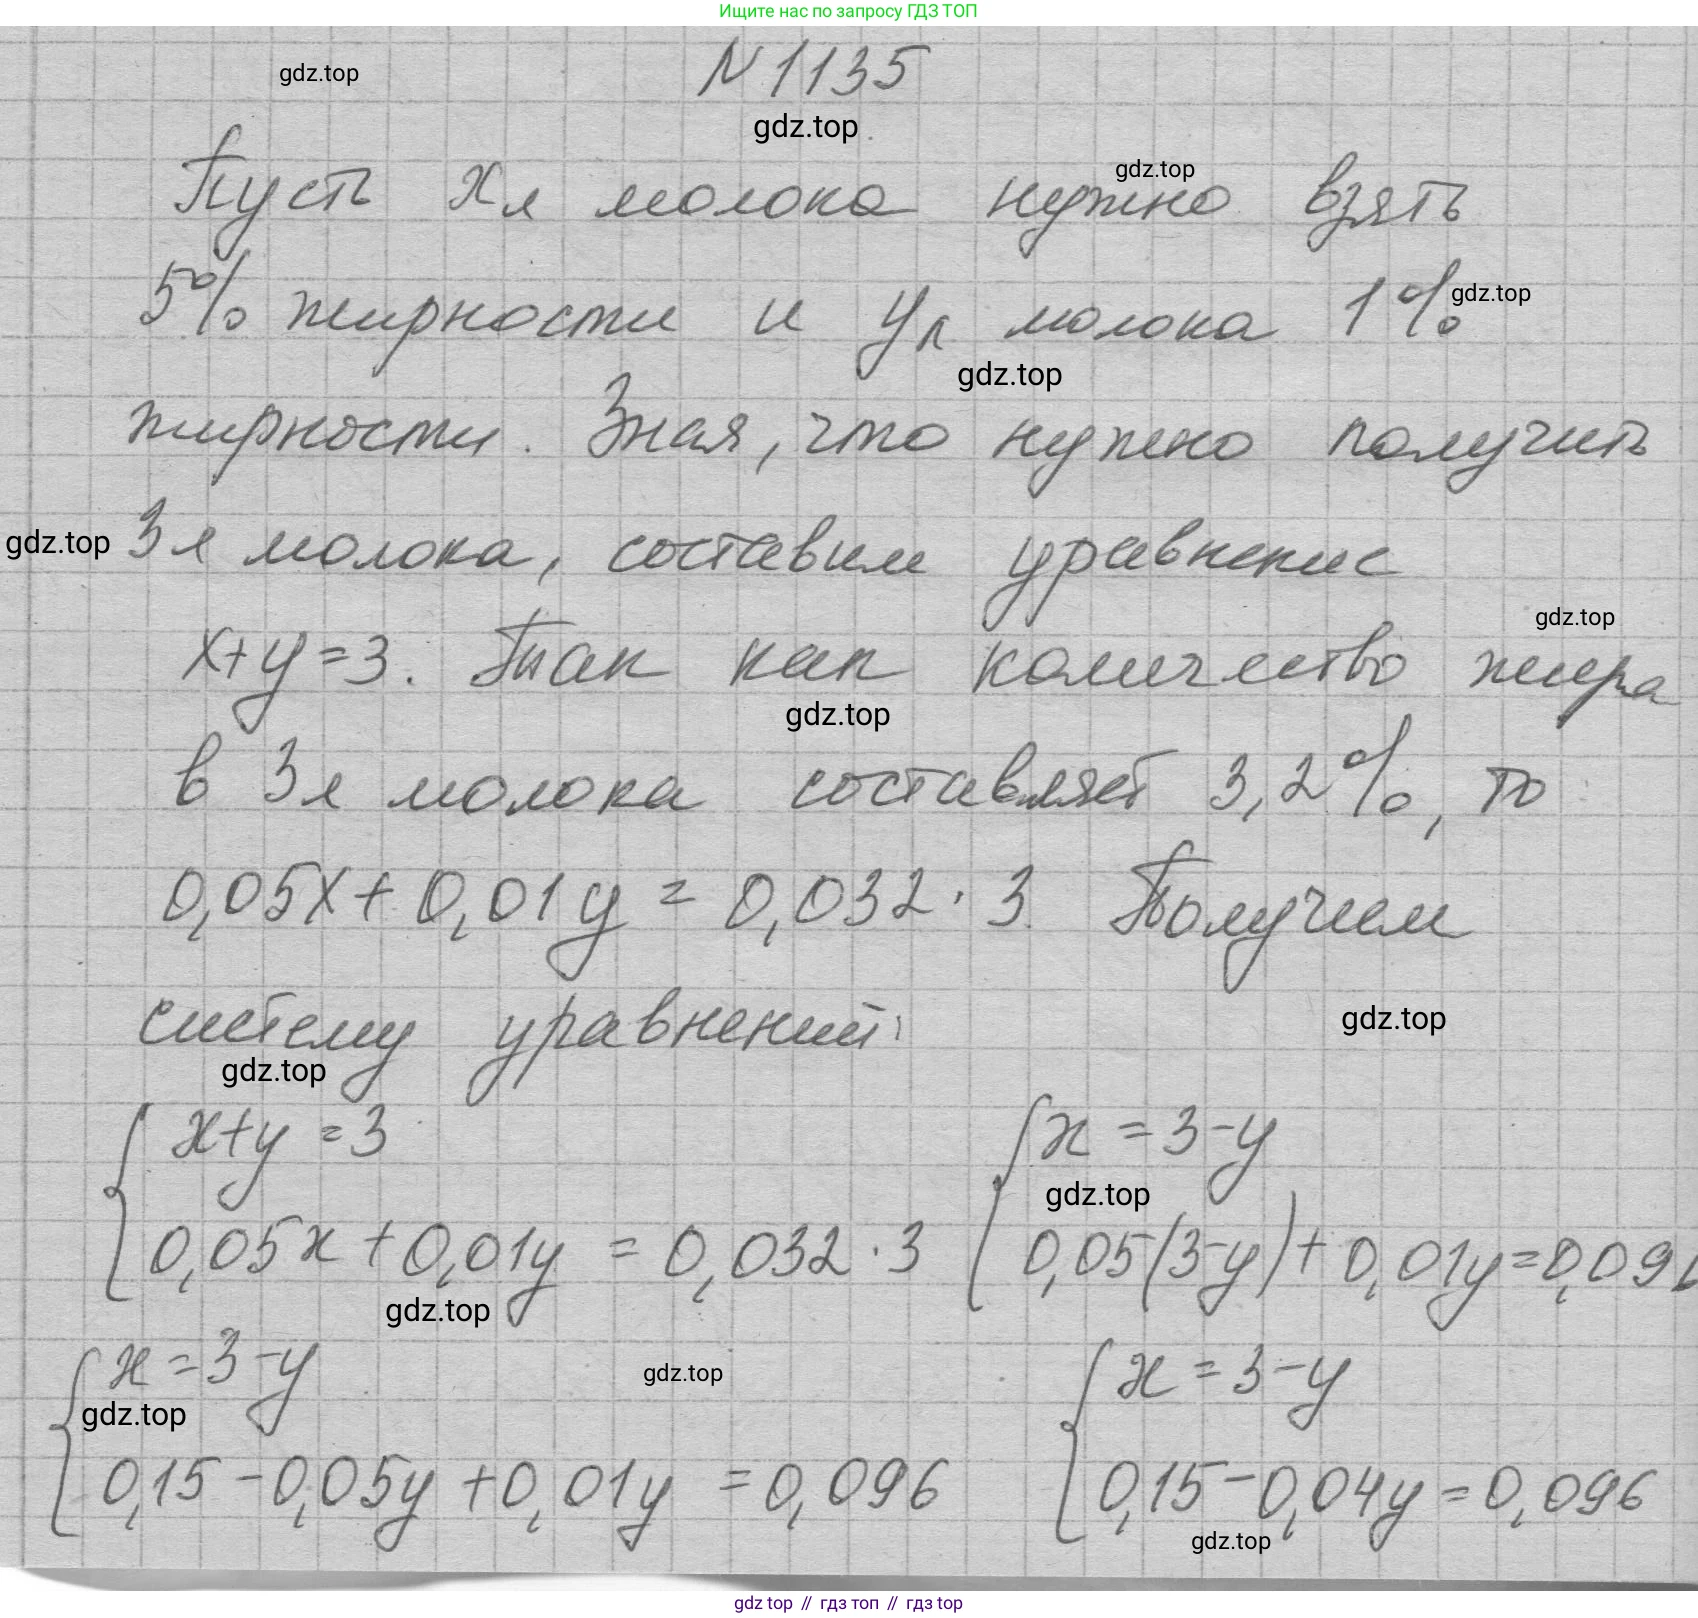 Ищите нас по запросу ГДЗ ТОП
N 1135
gdz.top
gdz.top
gdz.top
Пусть x л молока нужно взять
5% жирности и y л молока 1%
gdz.top
gdz.top
жирности. Зная, что нужно получить
gdz.top
3 л молока, составим уравнение
gdz.top
x+y=3. Так как количество жира
gdz.top
в 3 л молока составляет 3,2%, то
0,05x + 0,01y = 0,032 · 3. Получем
gdz.top
систему уравнений:
gdz.top
{ x+y=3
{ x = 3-y
gdz.top
0,05x + 0,01y = 0,032 · 3
0,05(3-y) + 0,01y=0,096
gdz.top
{ x = 3-y
gdz.top
{ x = 3-y
gdz.top
0,15 - 0,05y + 0,01y = 0,096
0,15 - 0,04y = 0,096
gdz.top
gdz.top // гдз топ // gdz.top